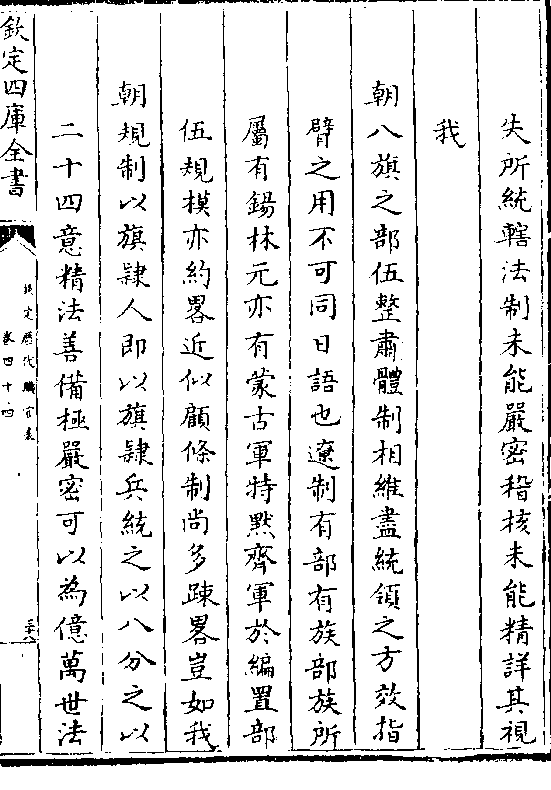 失所統轄法制未能嚴密稽核未能精詳其視
我
朝八旗之部伍整肅體制相維盡統領之方效指
臂之用不可同日語也遼制有部有族部族所
屬有錫林元亦有蒙古軍特默齊軍於編置部
伍規模亦約畧近似顧條制尚多踈畧豈如我
朝規制以旗隸人即以旗隸兵統之以八分之以
二十四意精法善備極嚴密可以為億萬世法
欽定四庫全書
欽定歷代職官表
卷四十四